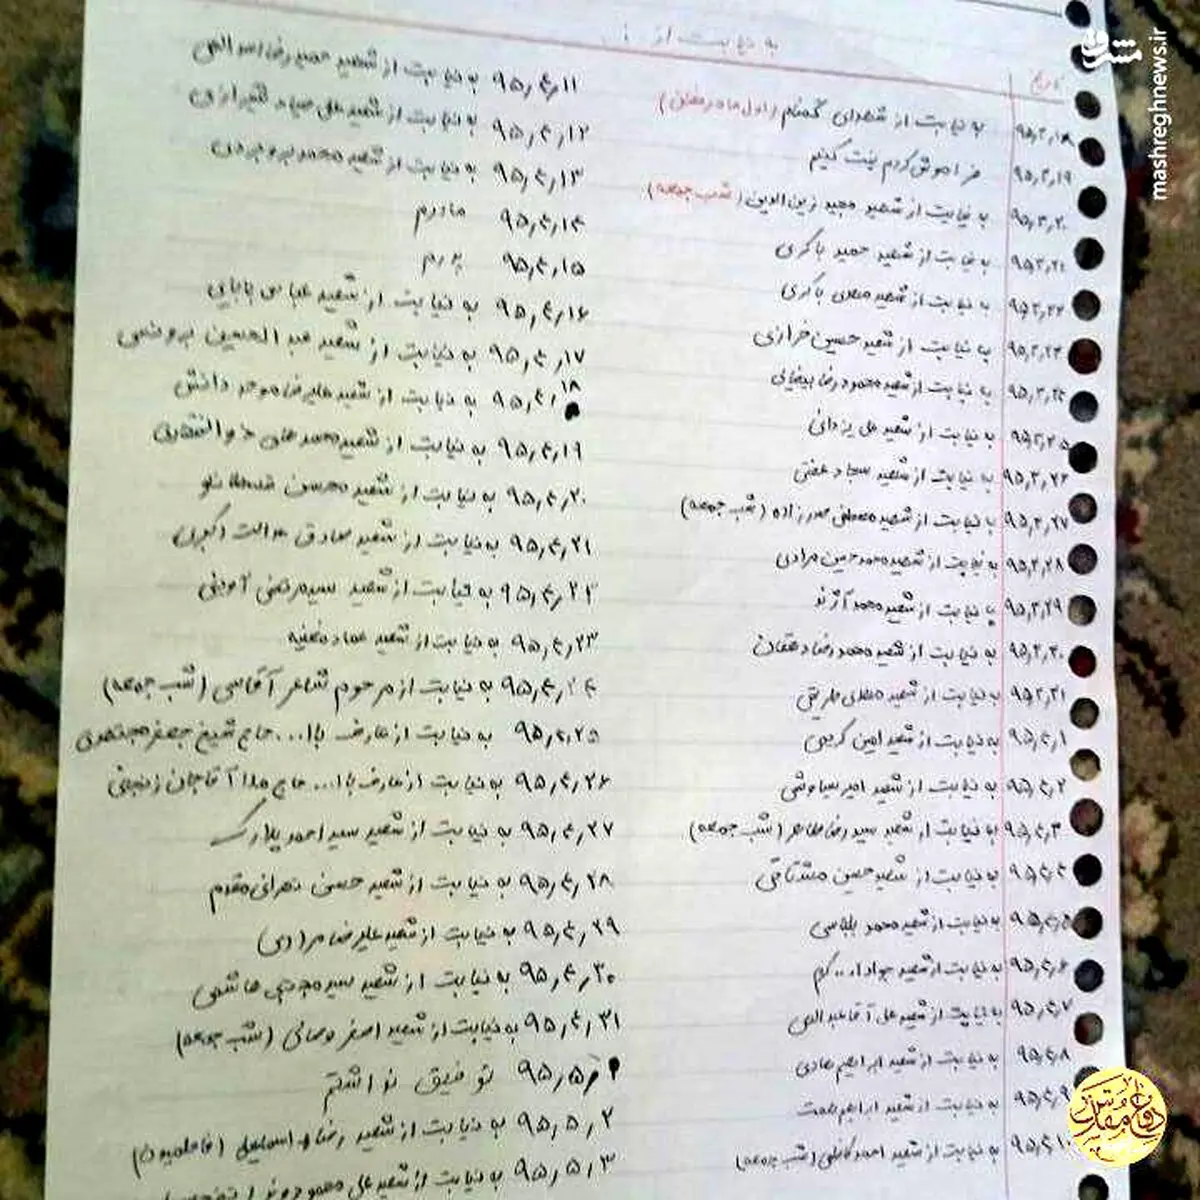 به نیابت از :
تاریخ
۹۵,۳,۱۸ به نیابت از شهدای گمنام (اول ماه رمضان)
۹۵,۳,۱۹ فراموش کردم نیت کنیم
۹۵,۳,۲۰ به نیابت از شهید مجید زین الدین (شب جمعه)
۹۵,۳,۲۱ به نیابت از شهید حمید باکری
۹۵,۳,۲۲ به نیابت از شهید مهدی باکری
۹۵,۳,۲۳ به نیابت از شهید حسین خرازی
۹۵,۳,۲۴ به نیابت از شهید محمودرضا بیضائی
۹۵,۳,۲۵ به نیابت از شهید علی یزدانی
۹۵,۳,۲۶ به نیابت از شهید سجاد عفتی
۹۵,۳,۲۷ به نیابت از شهید مصطفی صدرزاده (شب جمعه)
۹۵,۳,۲۸ به نیابت از شهید محمدحسین مرادی
۹۵,۳,۲۹ به نیابت از شهید محمد آژند
۹۵,۳,۳۰ به نیابت از شهید محمدرضا دهقان
۹۵,۳,۳۱ به نیابت از شهید مهدی طریقی
۹۵,۴,۱ به نیابت از شهید امین کریمی
۹۵,۴,۲ به نیابت از شهید امیر سیاوشی
۹۵,۴,۳ به نیابت از شهید سید رضا طاهر (شب جمعه)
۹۵,۴,۴ به نیابت از شهید حسین مشتاقی
۹۵,۴,۵ به نیابت از شهید محمد بلباسی
۹۵,۴,۶ به نیابت از شهید جواد ا... کرم
۹۵,۴,۷ به نیابت از شهید علی آقا عبدالهی
۹۵,۴,۸ به نیابت از شهید ابراهیم هادی
۹۵,۴,۹ به نیابت از شهید ابراهیم همت
۹۵,۴,۱۰ به نیابت از شهید احمد کاظمی (شب جمعه)
۹۵,۴,۱۱ به نیابت از شهید حمیدرضا اسدالهی
۹۵,۴,۱۲ به نیابت از شهید علی صیاد شیرازی
۹۵,۴,۱۳ به نیابت از شهید محمد بروجردی
۹۵,۴,۱۴ مادرم
۹۵,۴,۱۵ پدرم
۹۵,۴,۱۶ به نیابت از شهید عباس بابایی
۹۵,۴,۱۷ به نیابت از شهید عبدالحسین برونسی
۹۵,۴,۱۸ به نیابت از شهید علیرضا موحد دانش
۹۵,۴,۱۹ به نیابت از شهید محمدعلی ذوالفقاری
۹۵,۴,۲۰ به نیابت از شهید محسن
۹۵,۴,۲۱ به نیابت از شهید صادق عدالت اکبری
۹۵,۴,۲۲ به نیابت از شهید سید مرتضی آوینی
۹۵,۴,۲۳ به نیابت از شهید عماد مغنیه
۹۵,۴,۲۴ به نیابت از مرحوم شاعر آقاسی (شب جمعه)
۹۵,۴,۲۵ به نیابت از عارف باا... حاج شیخ جعفر مجتهدی
۹۵,۴,۲۶ به نیابت از عارف باا... حاج ملا آقاجان زنجانی
۹۵,۴,۲۷ به نیابت از شهید سید احمد پلارک
۹۵,۴,۲۸ به نیابت از شهید حسن تهرانی مقدم
۹۵,۴,۲۹ به نیابت از شهید علیرضا مرادی
۹۵,۴,۳۰ به نیابت از شهید سید مجتبی هاشمی
۹۵,۴,۳۱ به نیابت از شهید اصغر وصالی (شب جمعه)
۹۵,۵,۱ توفیق نداشتم
۹۵,۵,۲ به نیابت از شهید رضا اسماعیلی (فاطمیون)
۹۵,۵,۳ به نیابت از شهید علی محمودوند
مشرق
mashreghnews.ir
دفاع مقدس